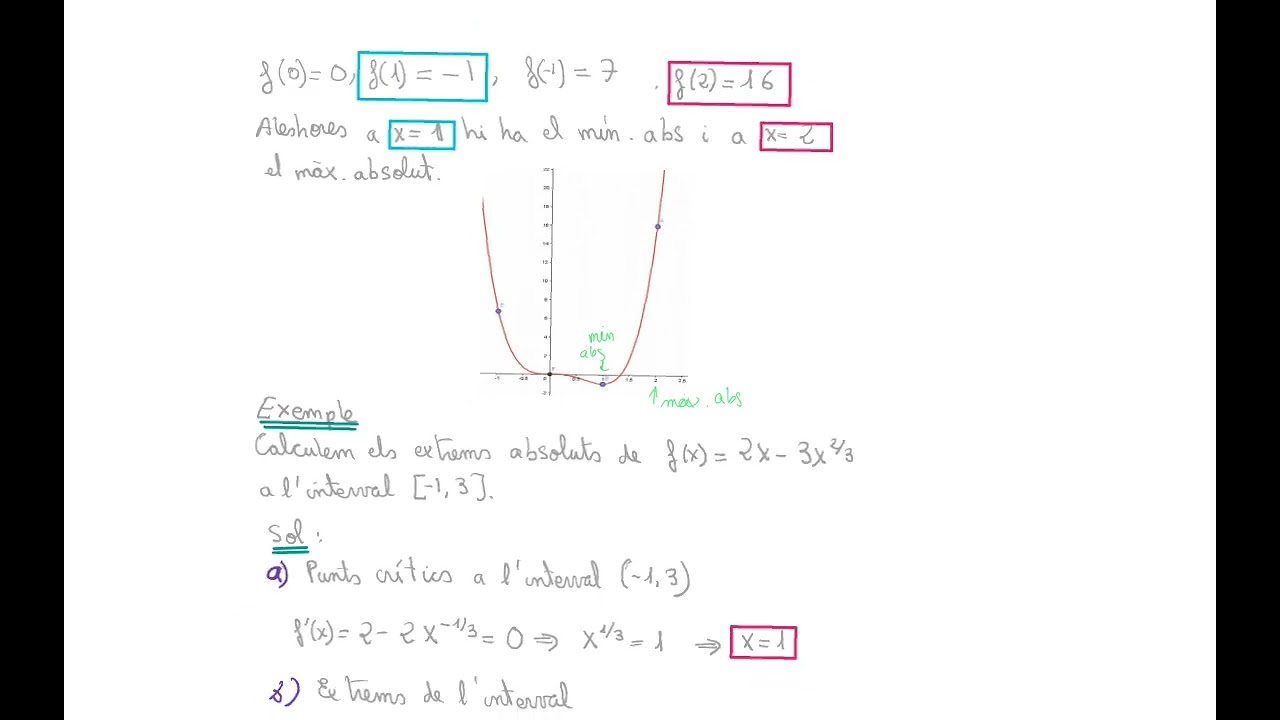 f(0)=0, f(1)=-1, f(-1)=7 . f(2)=16
Aleshores a x=1 hi ha el mín. abs i a x=2
el màx. absolut.
22
20
18
16
14
12
10
8
6
4
2
-1 -0.5 0 0.5 1.5 2 2.5
-2
mín
abs
↑ màx. abs
Exemple
Calculem els extrems absoluts de f(x) = 2x - 3x^2/3
a l'interval [-1, 3].
Sol:
a) Punts crítics a l'interval (-1, 3)
f'(x) = 2 - 2x^-1/3 = 0 ⇒ x^1/3 = 1 ⇒ x=1
b) Extrems de l'interval